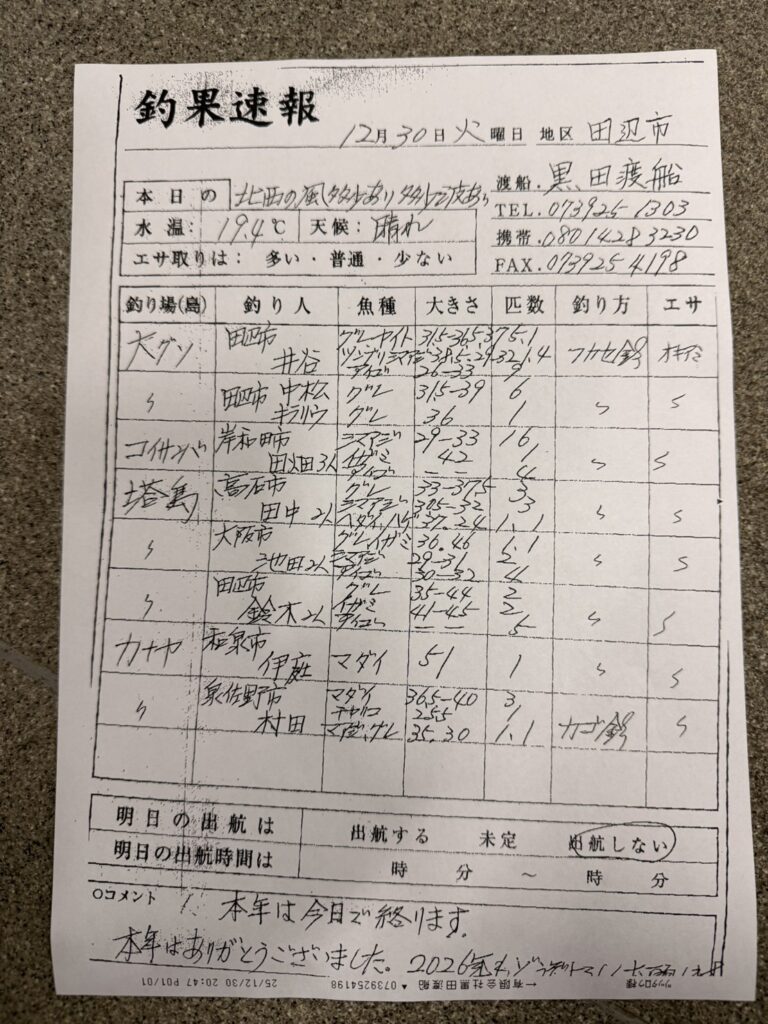 釣果速報
12月30日火曜日 地区 田辺市
本日の 北西の風多少あり 多少波あり
渡船. 黒田渡船
水温: 19.4℃ 天候: 晴れ
TEL. 073925 1303
携帯. 080 1428 3230
エサ取りは: 多い・普通・少ない
FAX. 073925 4198
釣り場(島) 釣り人 魚種 大きさ 匹数 釣り方 エサ
大グソ 田辺市 井谷 グレ イト 31.5-36.5.37 5.1 フカセ釣 オキアミ
ツンブリ シマアジ 38.5-29-32 1.4
アイゴ 26-33 9
〃 田辺市 中松 グレ 31.5-39 6 〃 〃
キラリウ グレ 36 1
コイサンバ 岸和田市 田畑3人 シマアジ 29-33 16 〃 〃
イガミ 42 1
アイゴ ーー 4
塔島 高石市 田中2人 グレ 33-37.5 3 〃 〃
シマアジ 30.5-32 3
ヘダイ.ハゲ 37.24 1.1
〃 大阪市 池田2人 グレ イガミ 36.46 1.1 〃 〃
シマアジ 29-31 2
アイゴ 30-32 4
〃 田辺市 鈴木2人 グレ 35-44 2 〃 〃
イガミ 41-45 2
アイゴ ーー 5
カナヤ 和泉市 伊庭 マダイ 51 1 〃 〃
〃 泉佐野市 村田 マダイ 36.5-40 3 カゴ釣 〃
チャリコ 25.5 1
マアジ.グレ 35.30 1.1
明日の出航は 出航する 未定 出航しない
明日の出航時間は 時 分 ~ 時 分
○コメント
本年は今日で終ります。
本年はありがとうございました。 2026年も
25/12/30 20:47 P01/01 ▲ 0739254198 ←有限会社黒田渡船